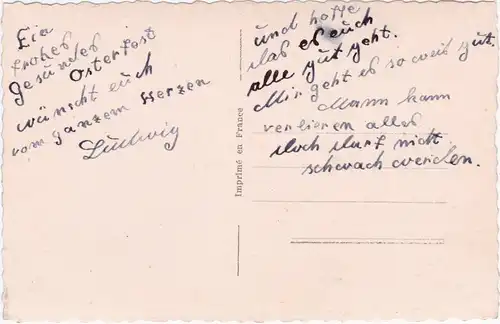 Ein
frohes
gesundes
Osterfest
wünscht euch
vom ganzem Herzen
Ludwig
Imprimé en France
und hoffe
das es euch
alle gut geht.
Mir geht es so weit gut.
Mann kann
verlieren alles
doch durf nicht
schwach werden.